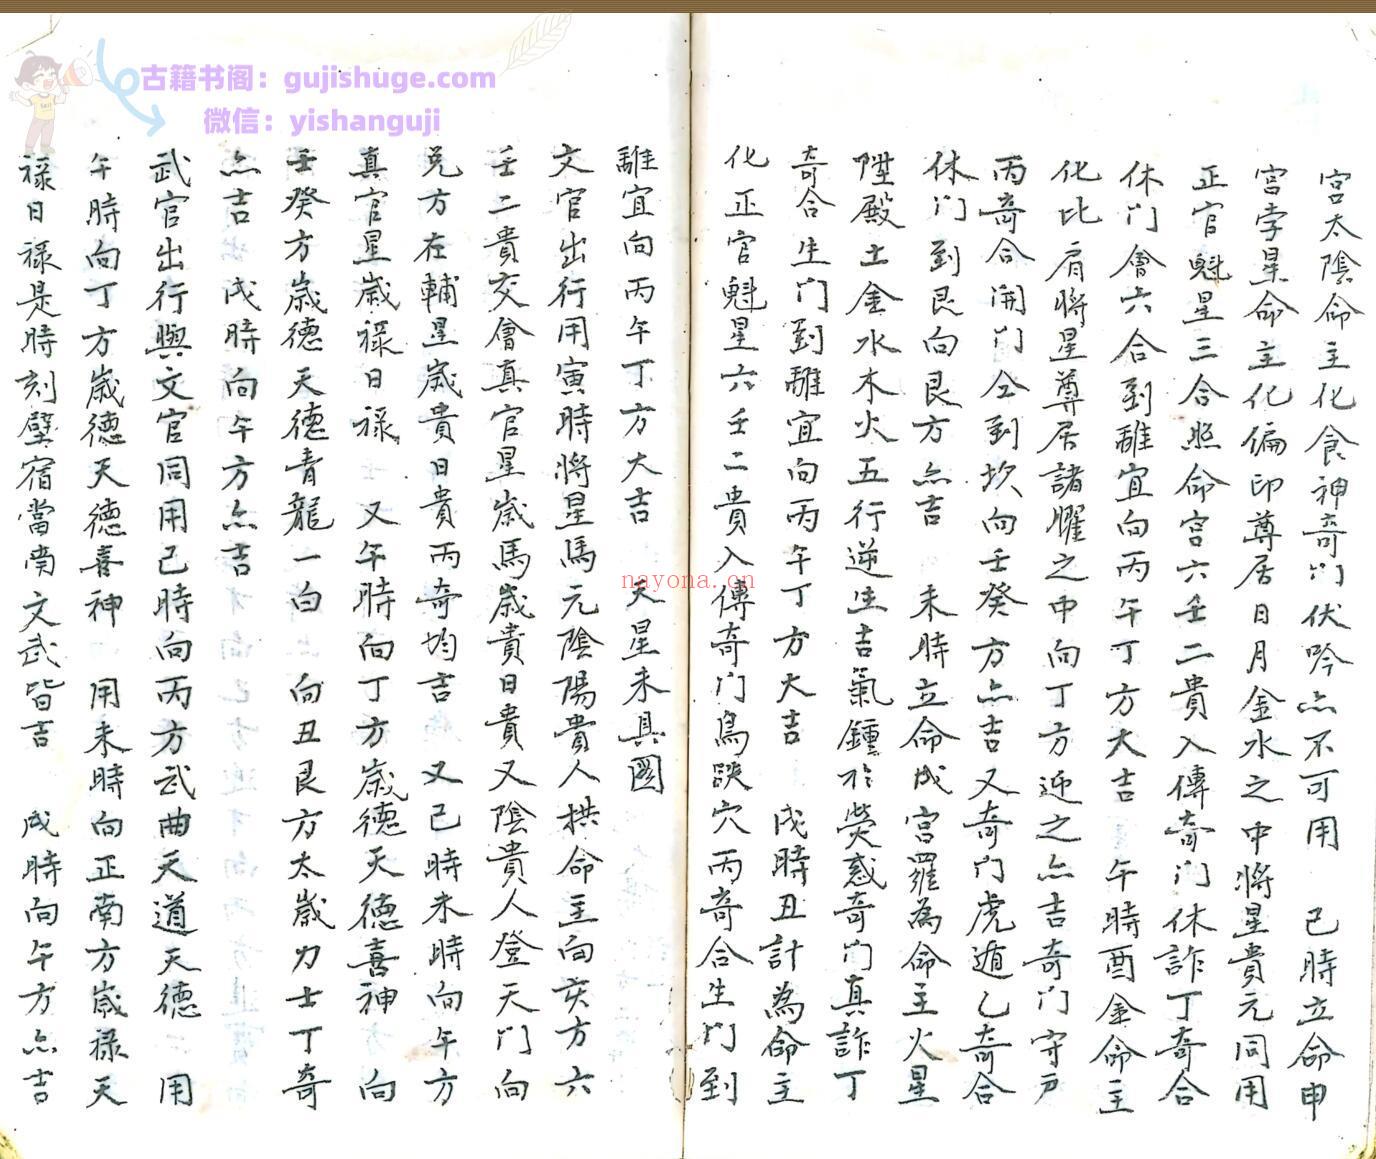 古籍书阁：gujishuge.com
微信：yishanguji
宮太陰命主化食神奇门伏吟亦不可用　己時立命申
宮孛星命主化偏印尊居日月金水之中將星貴元同用
正官魁星三合照命宮六壬二貴入傳奇门休詐丁奇合
休门會六合到離宜向丙午丁方大吉　午時酉金命主
化比肩將星尊居諸曜之中向丁方迎之亦吉奇门守户
丙奇合開门仝到坎向壬癸方亦吉又奇门虎遁乙奇合
休门到艮向艮方亦吉　未時立命戌宮羅為命主火星
陞殿土金水木火五行逆生吉氣鍾於熒惑奇门真詐丁
奇合生门到離宜向丙午丁方大吉　戌時丑計為命主
化正官魁星六壬二貴入傳奇门鳥跌穴丙奇合生门到
離宜向丙午丁方大吉　天星未具圖
文官出行用寅時將星馬元陰陽貴人拱命主向亥方六
壬二貴交會真官星歲馬歲貴日貴又陰貴人登天门向
兌方在輔星歲貴日貴丙奇均吉　又己時未時向午方
真官星歲祿日祿　又午時向丁方歲德天德喜神　向
壬癸方歲德天德青龍一白　向丑艮方太歲力士丁奇
亦吉　戌時向午方亦吉
武官出行與文官同用己時向丙方武曲天道天德　用
午時向丁方歲德天德喜神　用未時向正南方歲祿天
祿日祿是時刻壁宿當南文武皆吉　戌時向午方亦吉
nayona.cn